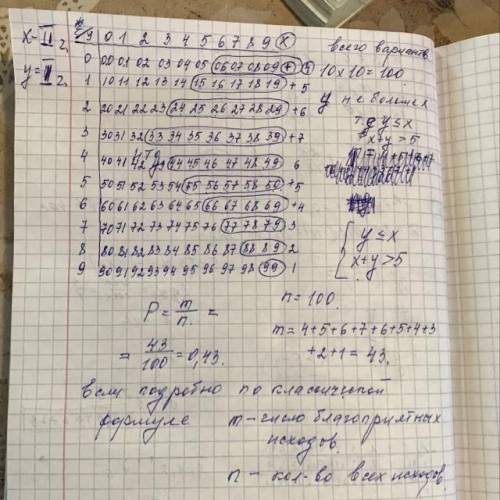 x - II г,
y = I г,
y 0 1 2 3 4 5 6 7 8 9 x
0 00 01 02 03 04 05 06 07 08 09 + 4
1 10 11 12 13 14 15 16 17 18 19 + 5
2 20 21 22 23 24 25 26 27 28 29 + 6
3 30 31 32 33 34 35 36 37 38 39 + 7
4 40 41 42 44 45 46 47 48 49 6
5 50 51 52 53 54 55 56 57 58 + 5
6 60 61 62 63 64 65 66 67 68 69 + 4
7 70 71 72 73 74 75 76 77 78 79 3
8 80 81 82 83 84 85 86 87 88 89 2
9 90 91 92 93 94 95 96 97 98 99 1
всего вариантов
10 x 10 = 100
y не больше x
y ≤ x
x + y > 5
{ y ≤ x
x + y > 5
P = m/n =
= 43/100 = 0,43.
n = 100.
m = 4+5+6+7+6+5+4+3
+2+1 = 43.
если подробно по классической
формуле
m - число благоприятных
исходов
n - кол-во всех исходов